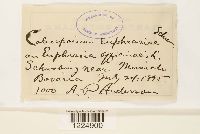 Coleosporium Euphrasiae
on Euphrasia officinalis L.
near Munich
Bavaria July 24, 1895
1000 A. P. Anderson
1224900